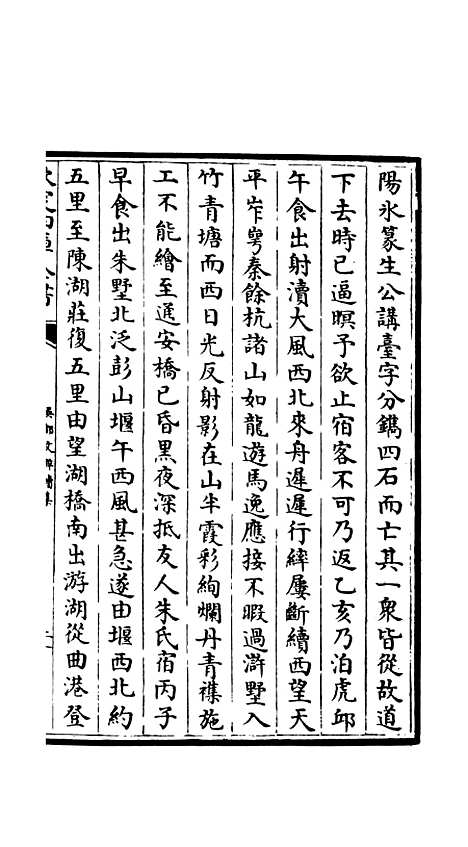 陽氷篆生公講臺字分鐫四石而亡其一衆皆從故道
下去時已逼暝予欲止宿客不可乃返乙亥乃泊虎邱
午食出射瀆大風西北來舟遲遲行縴屢斷續西望天
平岞㟧秦餘杭諸山如龍遊馬逸應接不暇過滸墅入
竹青塘而西日光反射影在山半霞彩絢爛丹青襍施
工不能繪至進安橋已昏黑夜深抵友人朱氏宿丙子
早食出朱墅北泛彭山堰午西風甚急遂由堰西北約
五里至陳湖莊復五里由望湖橋南出游湖從曲港登